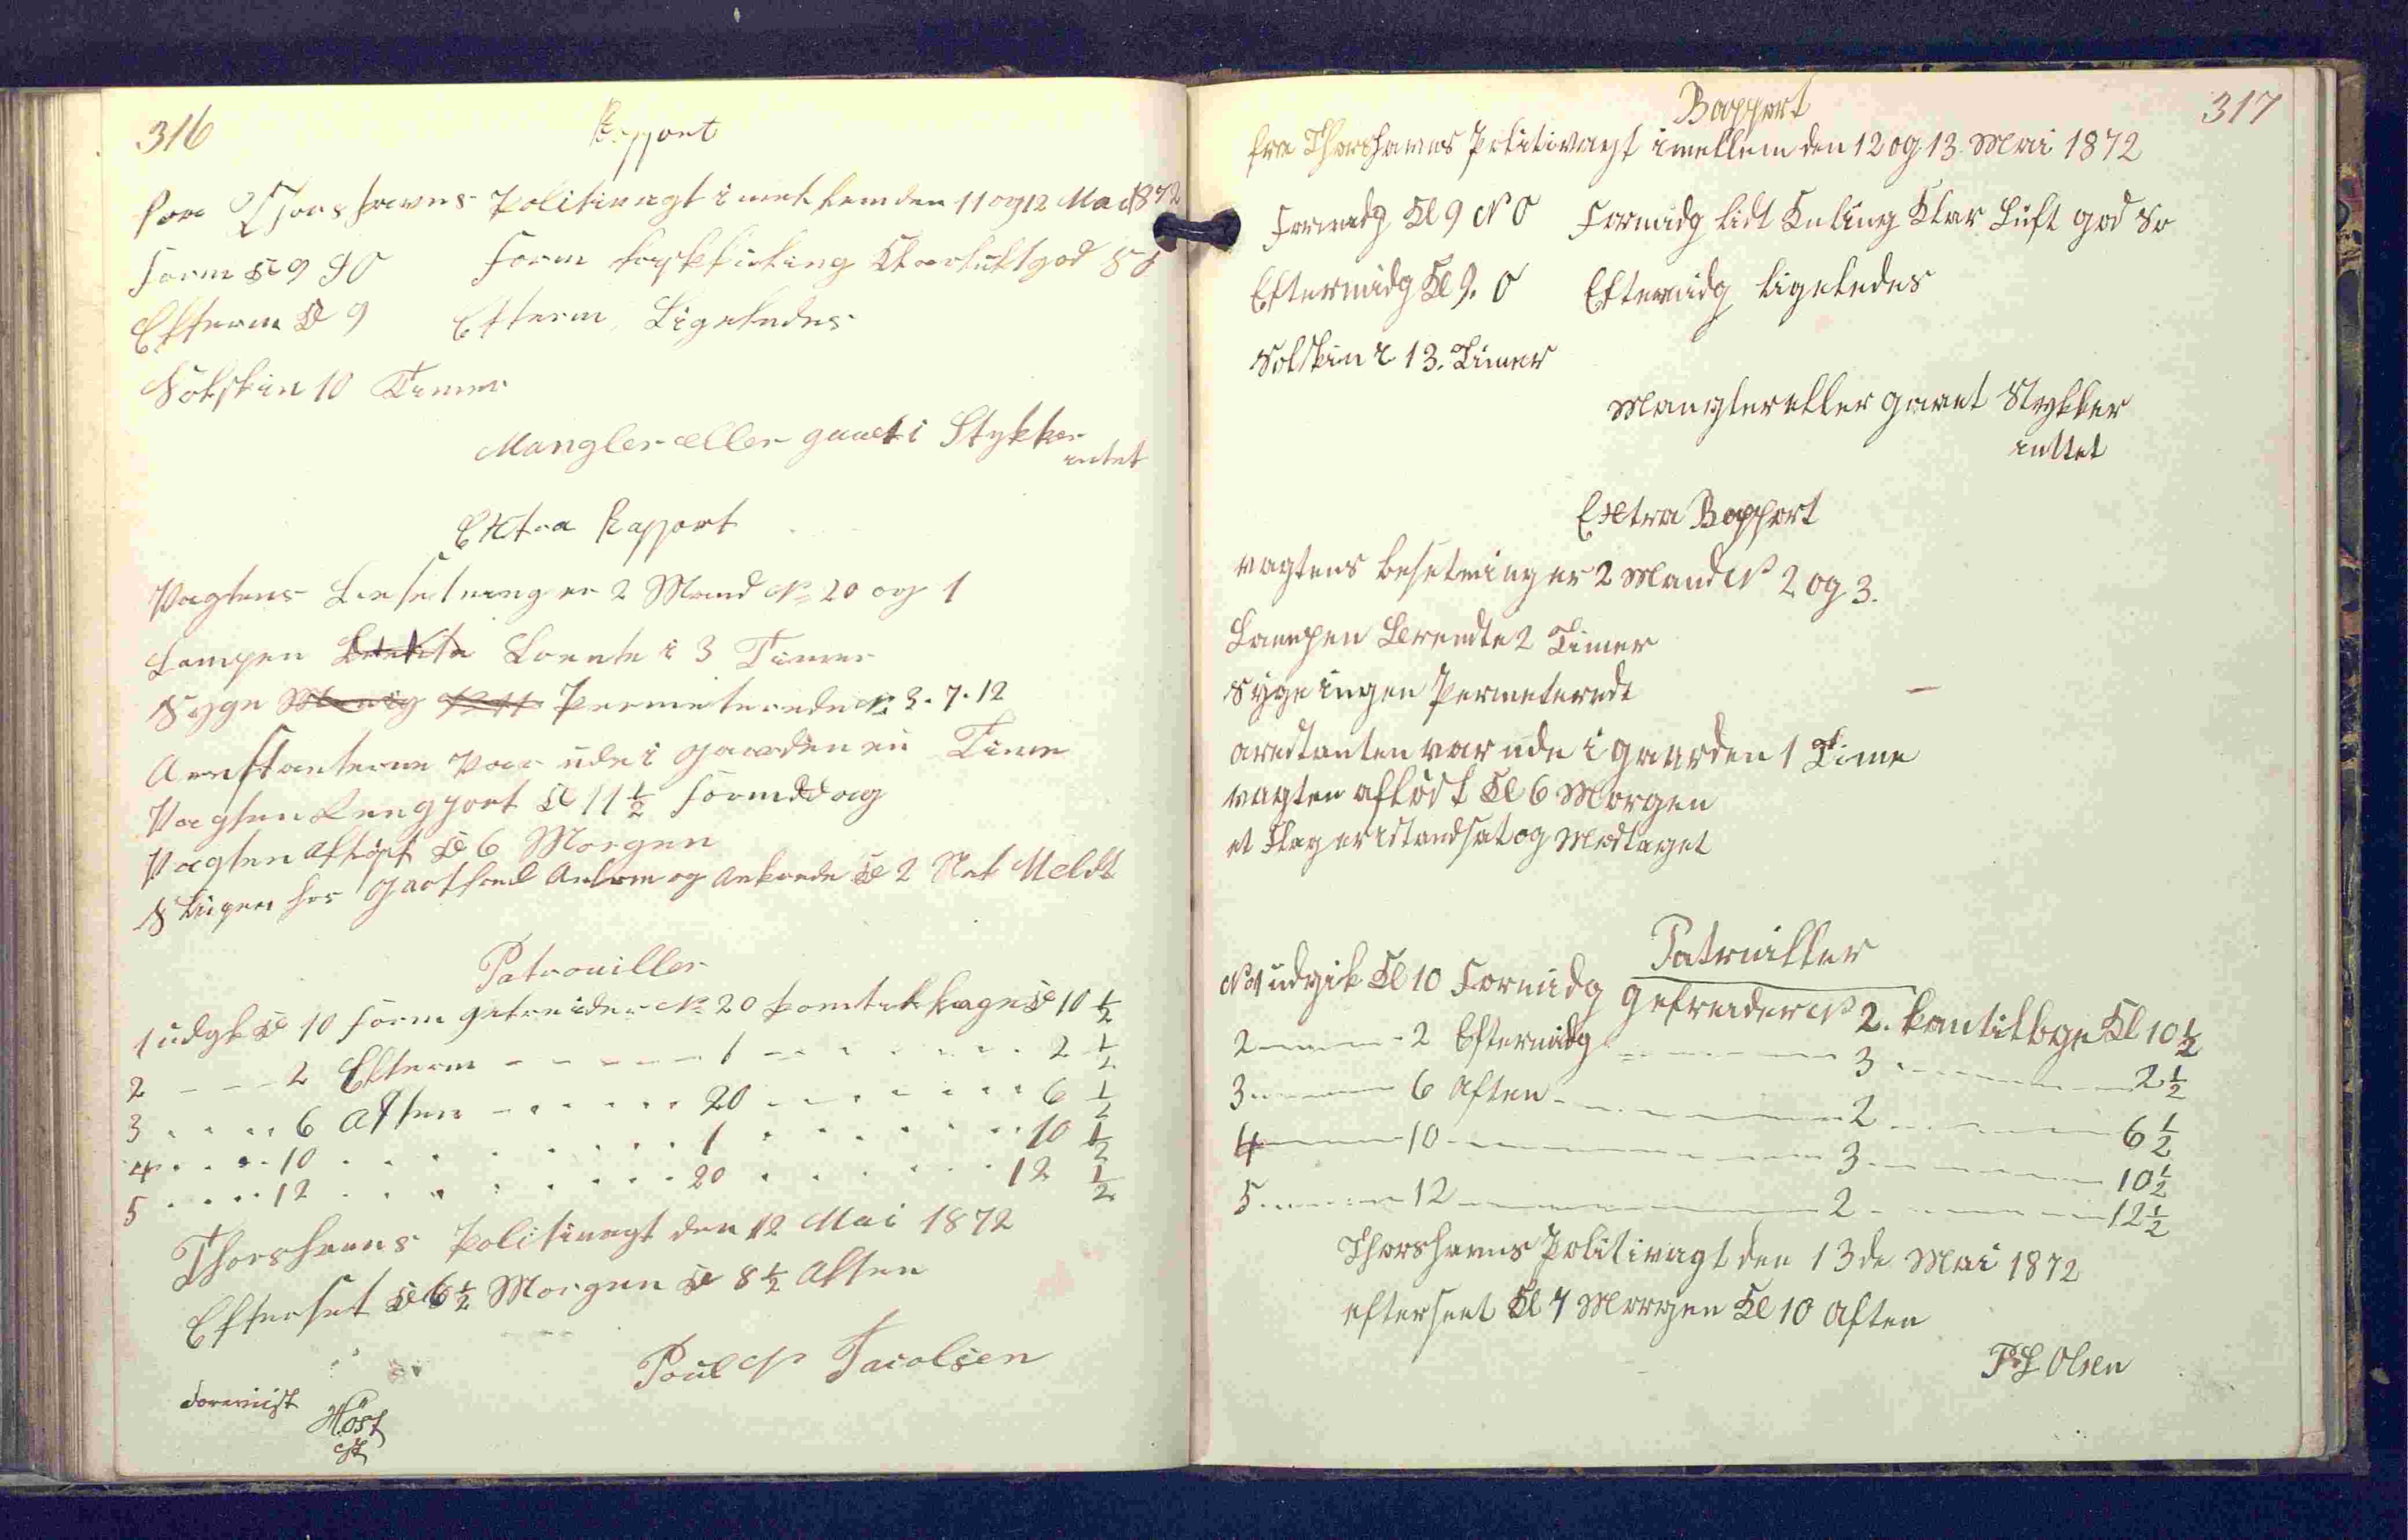 316
Rapport
fra Thorshavns Politivagt imellem den 11 og 12 Mai 1872
Form Kl 9 SO Form frisk Kuling Klar luft god Sö
Efterm Kl 9 Efterm Ligeledes
Solskin 10 Timer
Mangler eller gaaet i Stykker
intet
Extra Rapport
Vagtens Besetning er 2 Mand No 20 og 1
Lampen Brente i 3 Timer
Syge Permeterede No 3. 7. 12
Arrestanterne Var ude i gaarden en Time
Vagten Rengjort Kl 11 1/2 formiddag
Vagten Aflöst Kl 6 Morgen
Slupen Ankom og Ankrede Kl 2 Nat Meldt
Patrouiller
1 udgk Kl 10 form gefreider No 20 kom tilbage Kl 10 1/2
2 - - - 2 Efterm - - - - - 1 - - - - - - 2 1/2
3 . . . . 6 Aften - . . . . . 20 - - . . . . . 6 1/2
4 . . . . 10 . . . . . . . . 1 . . . . . . 10 1/2
5 . . . . 12 . . . . . . . . 20 . . . . . . 12 1/2
Thorshavns Politivagt den 12 Mai 1872
Efterset Kl 6 1/2 Morgen Kl 8 1/2 Aften
Poul N Jacobsen
forevist
Höst
317
Rapport
fra Thorshavns Politivagt imellem den 12 og 13. Mai 1872
Formidg Kl 9 N O Formidg lidt Kuling Klar Luft god So
Eftermidg Kl 9. O Eftermidg ligeledes
Solskin i 13. Timer
Mangler eller gaaet Stykker
inttet
Extra Rapport
vagtens besetning er 2 Mand No 2 og 3.
Lampen Brendte 2 Timer
Syge ingen Permeteredt —
arestanten var ude i gaarden 1 Time
vagten aflöst Kl 6 Morgen
et Flag er istandsat og Modtaget
Patruiller
No 1 udgik Kl 10 Formidg gefreider No 2. kom tilbge Kl 10 1/2
2 ------- 2 Eftermidg ------- 3 ------- 2 1/2
3 ------- 6 Aften ------- 2 ------- 6 1/2
4 ------- 10 ------- 3 ------- 10 1/2
5 ------- 12 ------- 2 ------- 12 1/2
Thorshavns Politivagt den 13de Mai 1872
efterseet Kl 7 Morgen Kl 10 Aften
Olsen